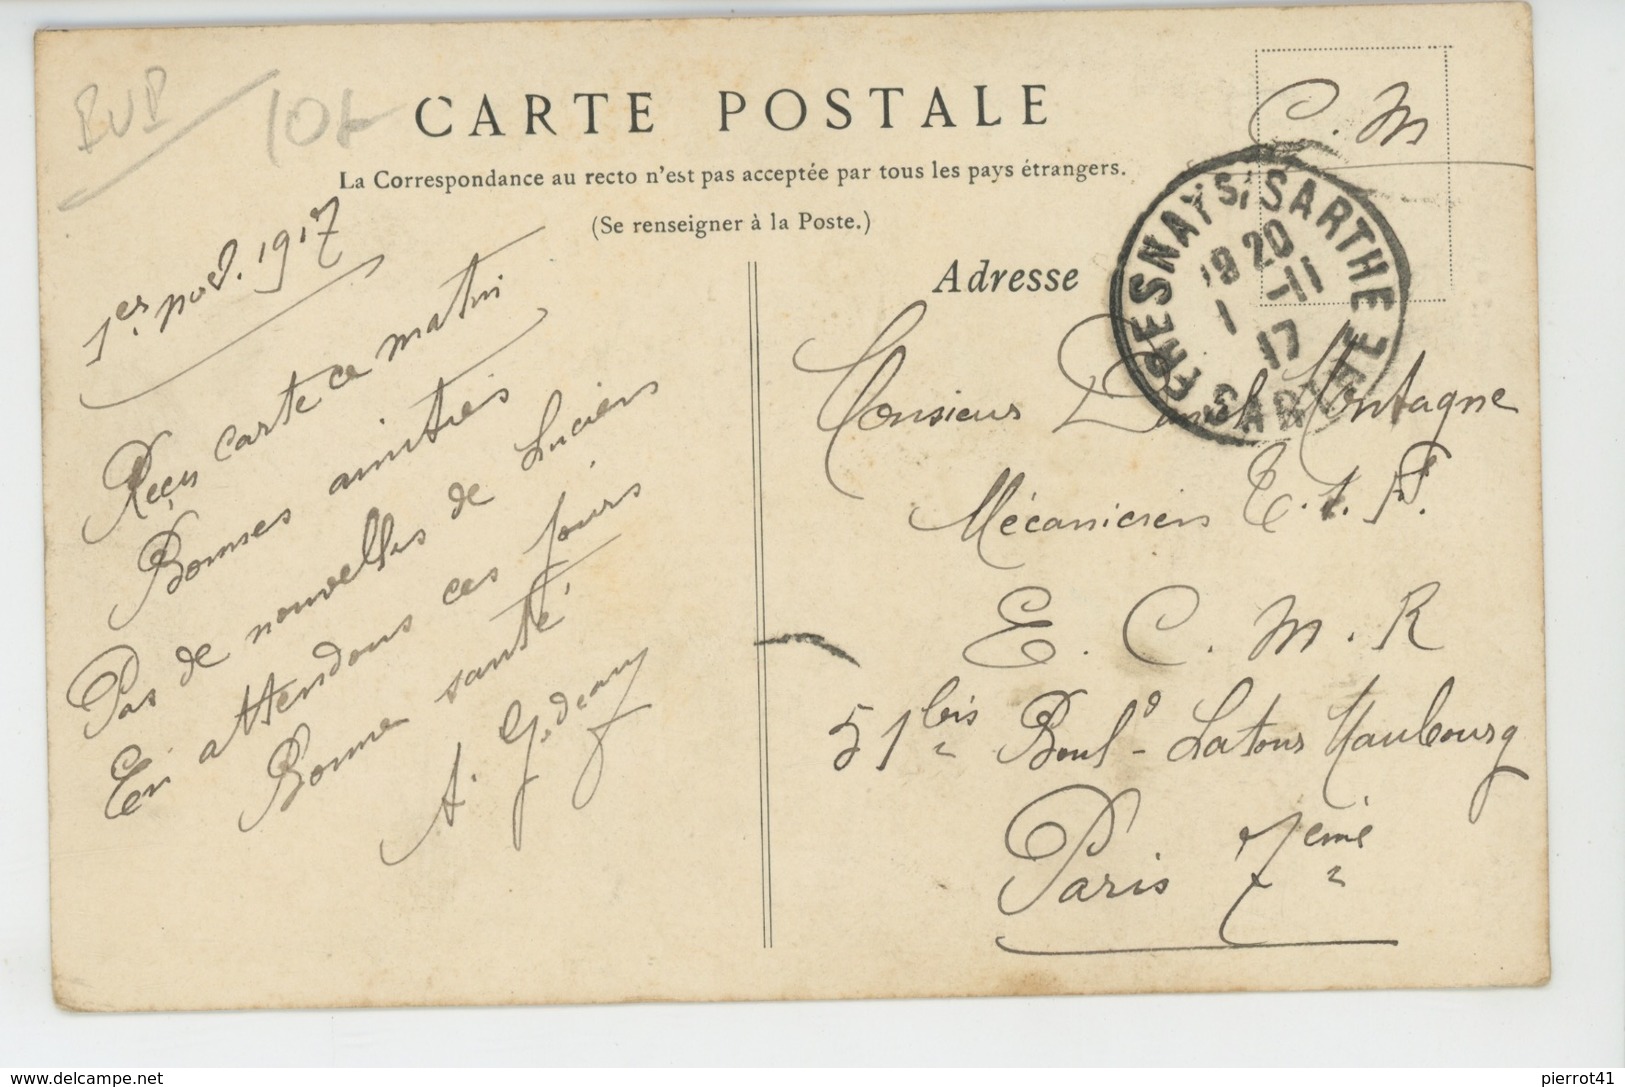 CARTE POSTALE
La Correspondance au recto n'est pas acceptée par tous les pays étrangers.
(Se renseigner à la Poste.)
C. M
1er nov. 1917
Reçu carte ce matin
Bonnes amitiés
Pas de nouvelles de Lucien
En attendons ces jours
Bonne santé
Adresse
FRESNAY S/ SARTHE
SARTHE
18 20
1 -11
17
Monsieur Daniel Montagne
Mécanicien
E. C. M. R
51 bis Boul d Latour Maubourg
Paris 7ème
www.delcampe.net
pierrot41